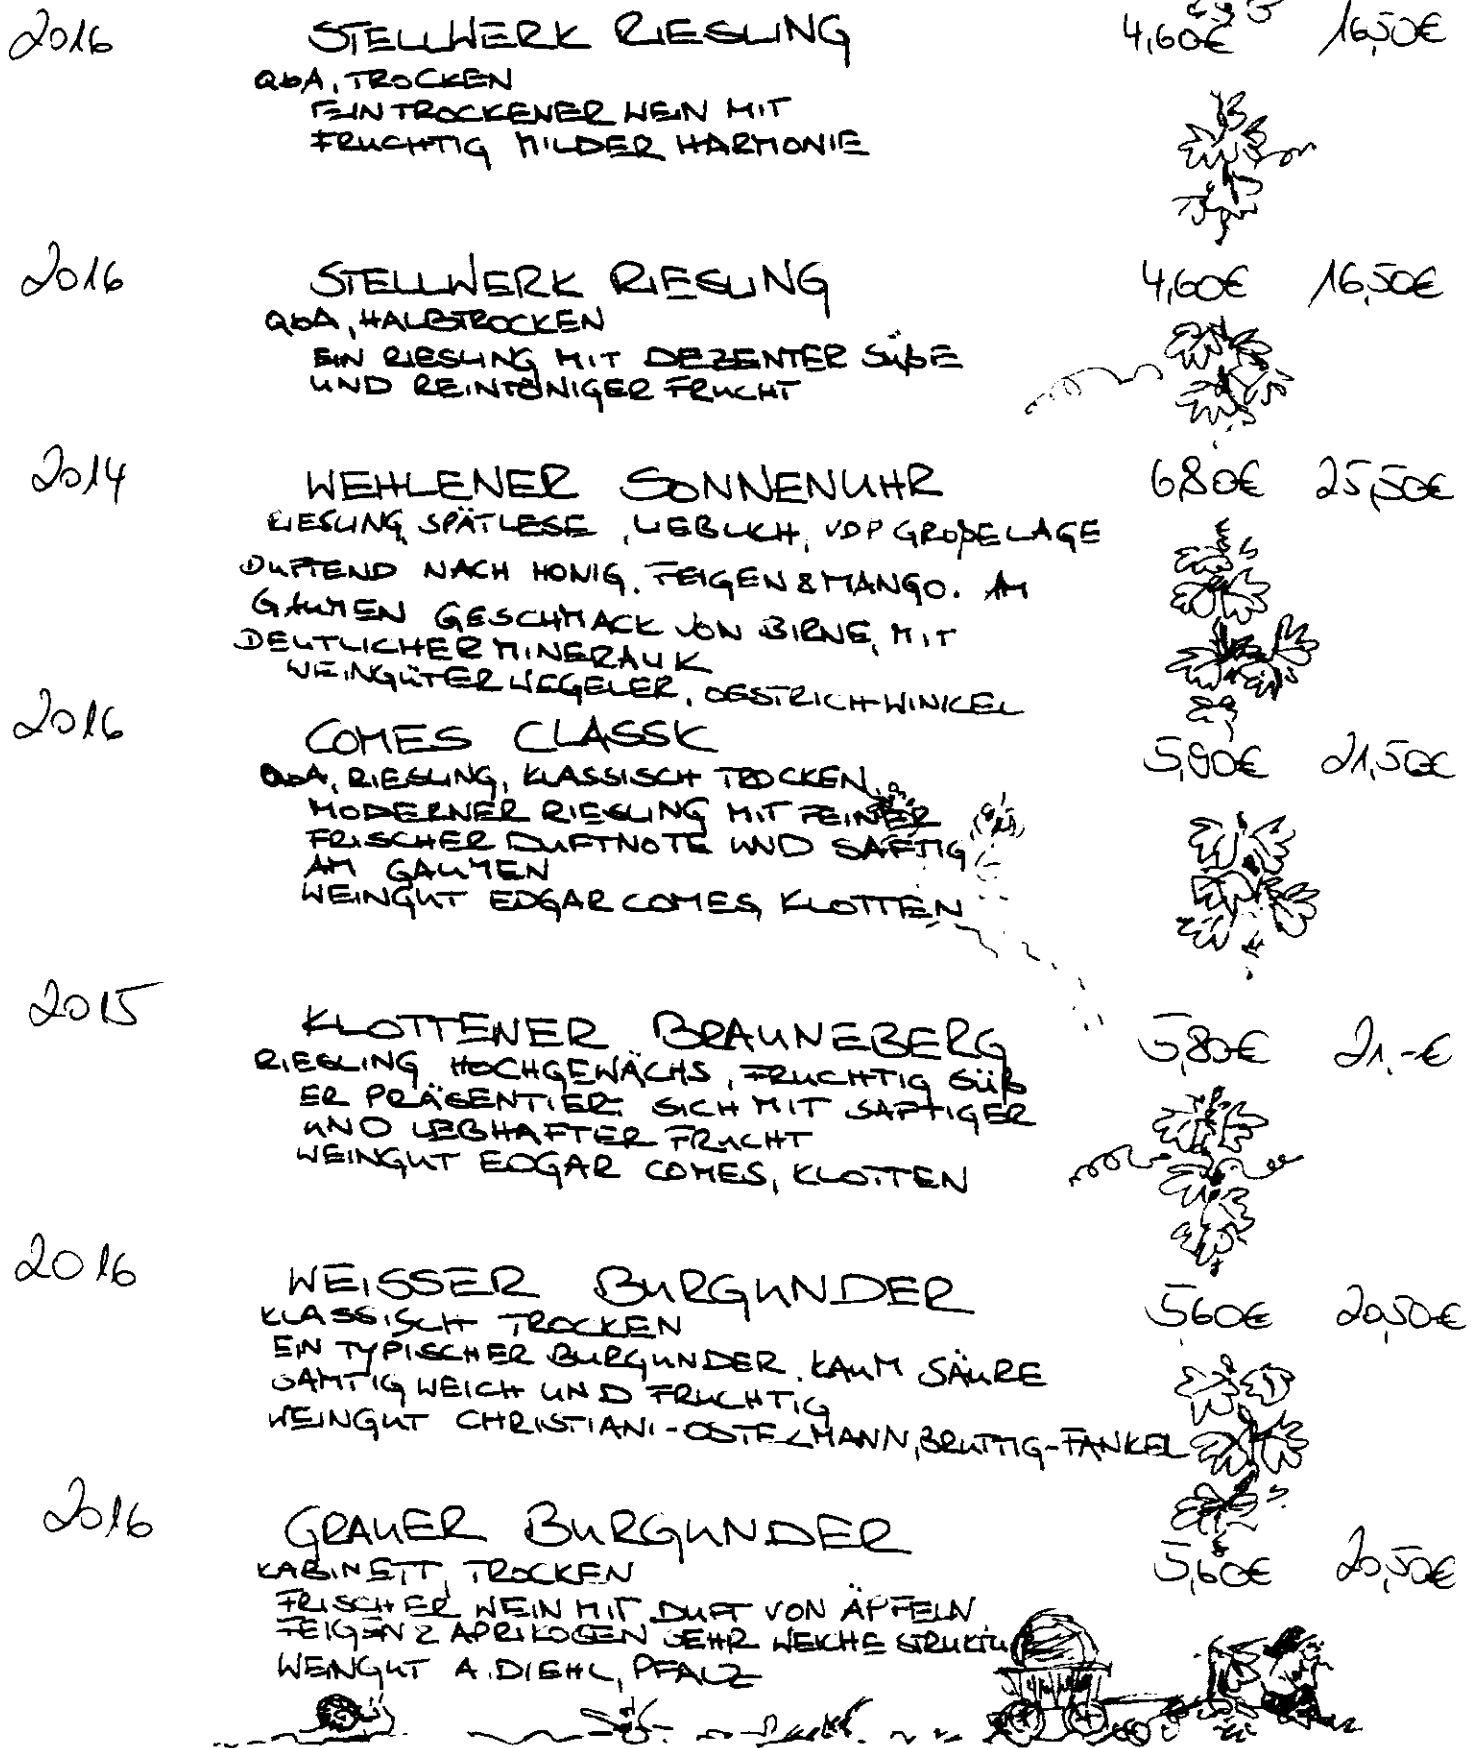 2016 STELLWERK RIESLING 4,60€ 16,50€
QbA, TROCKEN
EIN TROCKENER WEIN MIT
FRUCHTIG MILDER HARMONIE
2016 STELLWERK RIESLING 4,60€ 16,50€
QbA, HALBTROCKEN
EIN RIESLING MIT DEZENTER SÜßE
UND REINTÖNIGER FRUCHT
2014 WEHLENER SONNENUHR 6,80€ 25,50€
RIESLING, SPÄTLESE, LIEBLICH, VDP GROßE LAGE
DUFTEND NACH HONIG, FEIGEN & MANGO. AM
GAUMEN GESCHMACK VON BIRNE, MIT
DEUTLICHER MINERALIK
WEINGÜTER WEGELER, OESTRICH-WINKEL
2016 COMES CLASSIC 5,90€ 21,50€
QbA, RIESLING, KLASSISCH TROCKEN
MODERNER RIESLING MIT FEINER
FRISCHER DUFTNOTE UND SAFTIG
AM GAUMEN
WEINGUT EDGAR COMES, KLOTTEN
2015 KLOTTENER BRAUNEBERG 5,80€ 21,-€
RIESLING HOCHGEWÄCHS, FRUCHTIG SÜß
ER PRÄSENTIERT SICH MIT SAFTIGER
UND LEBHAFTER FRUCHT
WEINGUT EDGAR COMES, KLOTTEN
2016 WEISSER BURGUNDER 5,60€ 20,50€
KLASSISCH TROCKEN
EIN TYPISCHER BURGUNDER, KAUM SÄURE
SAMTIG WEICH UND FRUCHTIG
WEINGUT CHRISTIANI-OSTELMANN, BRUTTIG-FANKEL
2016 GRAUER BURGUNDER 5,60€ 20,50€
KABINETT, TROCKEN
FRISCHER WEIN MIT DUFT VON ÄPFELN
FEIGEN & APRIKOSEN SEHR WEICHE STRUKTUR
WEINGUT A. DIEHL, PFALZ